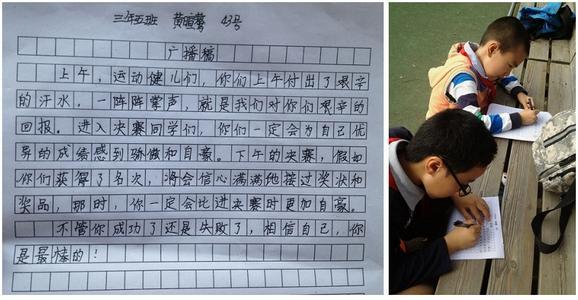 三年五班 黄 43号
广播稿
上午，运动健儿们，你们上午付出了艰辛
的汗水，一阵阵掌声，就是我们对你们艰辛的
回报。进入决赛同学们，你们一定会为自己优
异的成绩感到骄傲和自豪。下午的决赛，假如
你们获得了名次，将会信心满满地接过奖状和
奖品，那时，你一定会比进决赛时更加自豪。
不管你成功了还是失败了，相信自己，你
是最棒的！